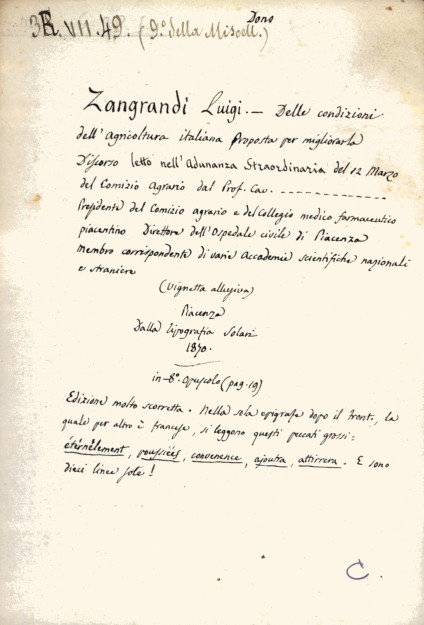 Dono
3R. VII. 49. (9.° della Miscell.)
Zangrandi Luigi. — Delle condizioni
dell'agricoltura italiana Proposta per migliorarla
Discorso letto nell'Adunanza Straordinaria del 12 Marzo
del Comizio Agrario dal Prof. Cav. - - - - - - - - - - - -
Presidente del Comizio agrario e del Collegio medico farmaceutico
piacentino Direttore dell'Ospedale civile di Piacenza
membro corrispondente di varie Accademie scientifiche nazionali
e straniere
(Vignetta allusiva)
Piacenza
Dalla Tipografia Solari
1870.
in-8.° opuscolo (pag. 19)
Edizione molto scorretta. Nella sola epigrafe dopo il front., la
quale per altro è francese, si leggono questi peccati grossi:
éternèlement, poussiées, convenence, ajoutra, attirrera. E sono
dieci linee sole!
C.